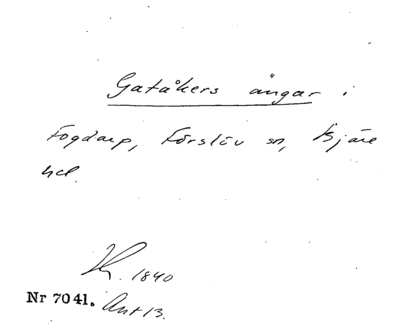 Gatåkers ängar i
Fogdarp, Förslöv sn, Bjäre
hd.
1840
Nr 7041. Ant 13.